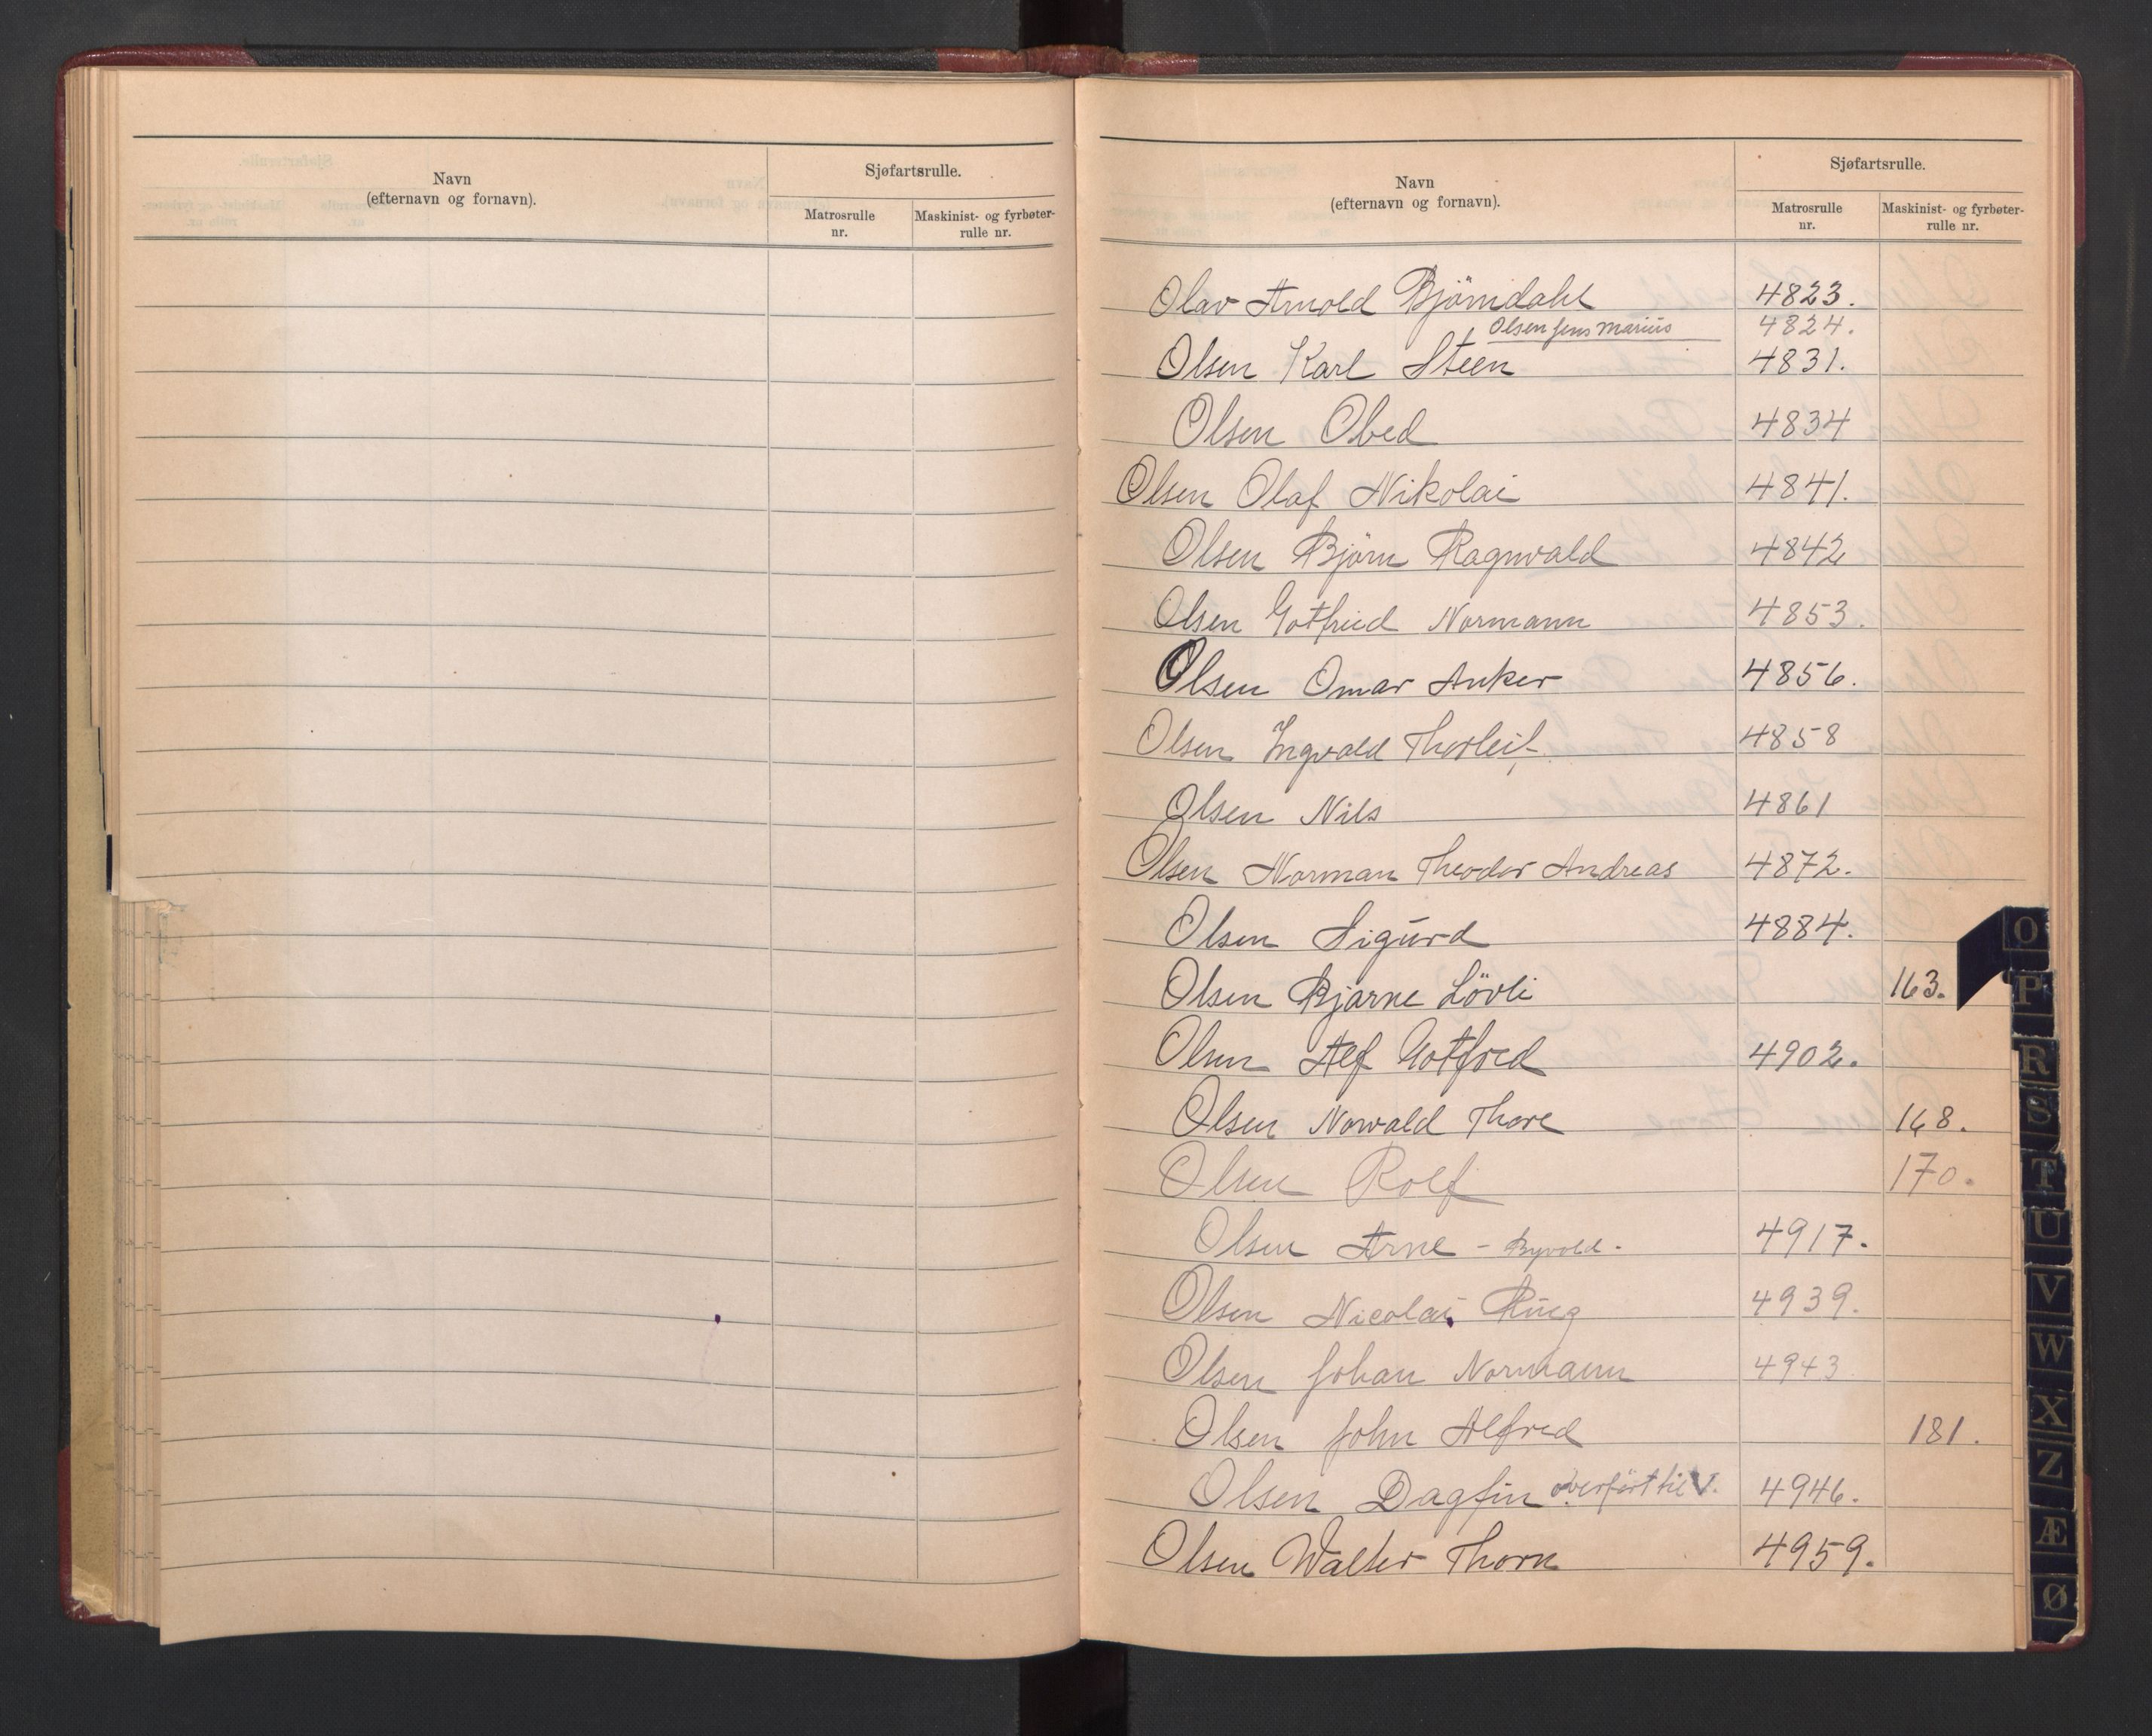 Navn
(efternavn og fornavn).
Sjøfartsrulle.
Matrosrulle
nr.
Maskinist- og fyrbøter-
rulle nr.
Navn
(efternavn og fornavn).
Sjøfartsrulle.
Matrosrulle
nr.
Maskinist- og fyrbøter-
rulle nr.
Olav Arnold Björndahl 4823.
Olsen Jens Marius 4824.
Olsen Karl Steen 4831.
Olsen Obed 4834
Olsen Olaf Nikolai 4841.
Olsen Björn Ragnvald 4842
Olsen Gotfried Normann 4853.
Olsen Omar Anker 4856.
Olsen Yngvald Thorleif 4858
Olsen Nils 4861
Olsen Norman Theodor Andreas 4872.
Olsen Sigurd 4884.
Olsen Bjarne Lövli 163.
Olsen Alf Gotfred 4902.
Olsen Norvald Thore 168.
Olsen Rolf 170.
Olsen Arne - Byvold. 4917.
Olsen Nicolai Ring 4939.
Olsen Johan Normann 4943
Olsen John Alfred 181.
Olsen Dagfin overfört til V. 4946.
Olsen Walter Thorn 4959.
O
P
R
S
T
U
V
W
X
Z
Æ
Ø